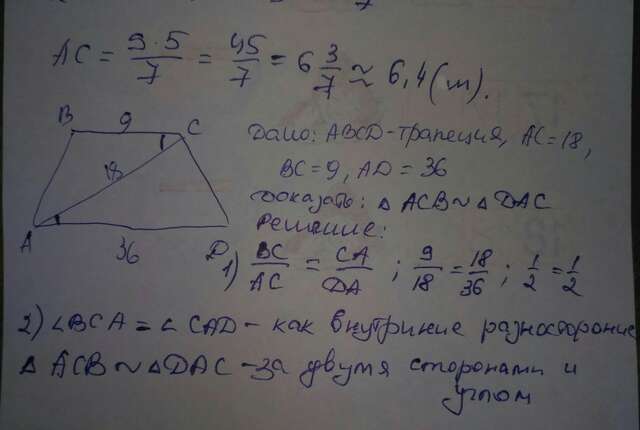 AC = 9·5/7 = 45/7 = 6 3/7 ≈ 6,4 (м).
B 9 C
18
A 36 D
Дано: ABCD-трапеция, AC=18,
BC=9, AD=36
Доказать: △ACB ~ △DAC
Решение:
1) BC/AC = CA/DA ; 9/18 = 18/36 ; 1/2 = 1/2
2) ∠BCA = ∠CAD - как внутрение разносторонние
△ACB ~ △DAC - за двумя сторонами и
углом